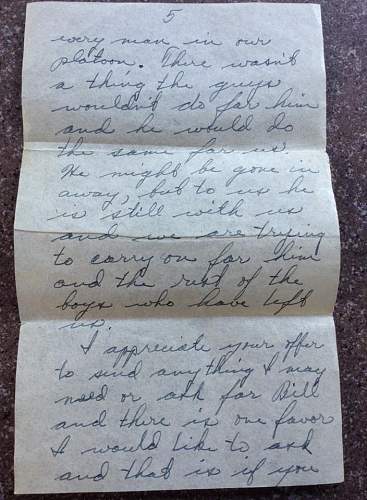 5
every man in our
platoon. There wasn't
a thing the guys
wouldn't do for him
and he would do
the same for us.
He might be gone in
away, but to us he
is still with us
and we are trying
to carry on for him
and the rest of the
boys who have left
us.
I appreciate your offer
to send anything I may
need or ask for Bill
and there is one favor
I would like to ask
and that is if you